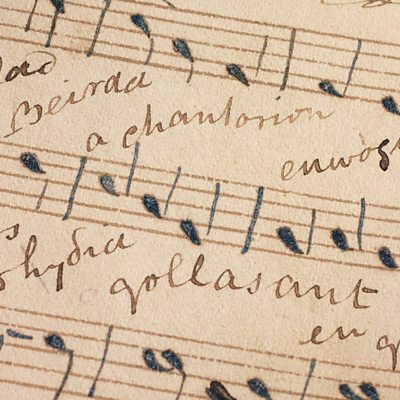 lad Beirdd a chantorion enwog
s rhyddid gollasant eu g